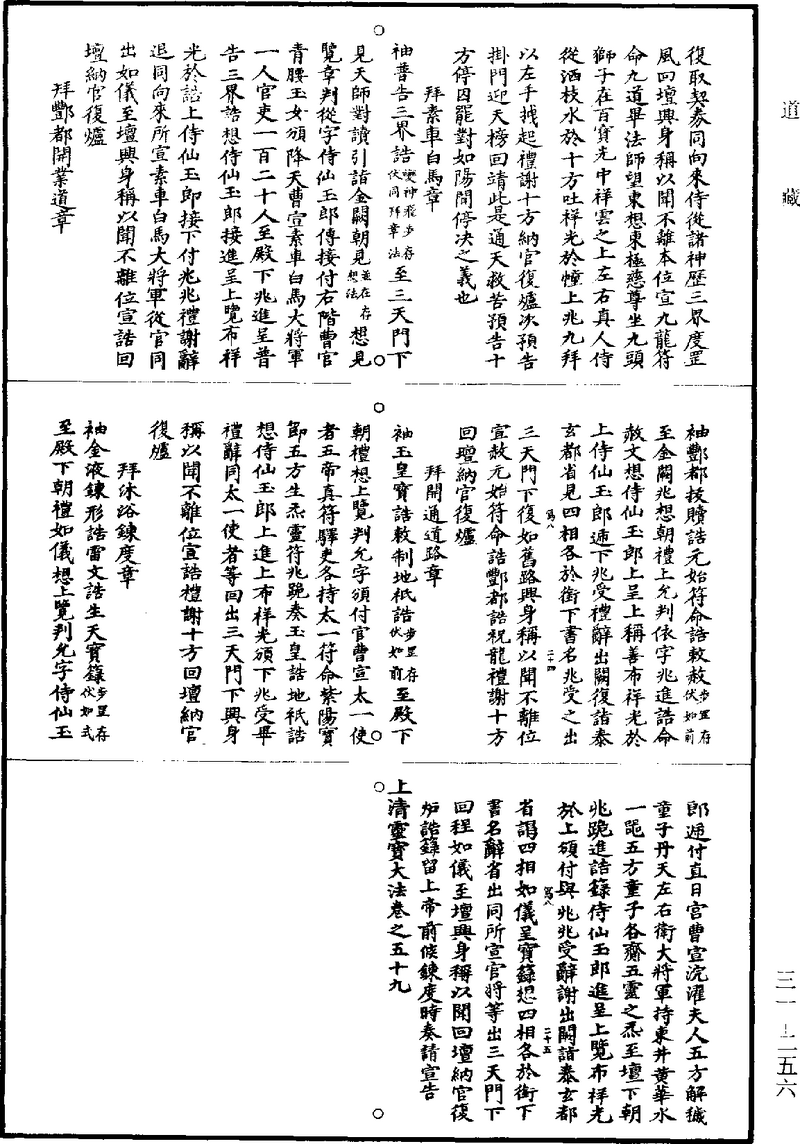 道藏
復取契券同向來侍從諸神歷三界度罡
風回壇興身稱以聞不離本位宣九龍符
命九道畢法師望東想東極慈尊坐九頭
獅子在百寶光中祥雲之上左右真人侍
從洒枝水於十方吐祥光於幢上兆九拜
以左手拽起禮謝十方納官復爐次預告
掛門迎天榜回靖此是通天救苦預告十
方停囚罷對如陽間停決之義也
拜素車白馬章
袖普告三界誥變神飛步存伏同拜章法至三天門下
見天師對讀引詣金闕朝見並在存想法想見
覽章判從字侍仙玉郎傳接付右階曹官
青腰玉女頒降天曹宣素車白馬大將軍
一人官吏一百二十人至殿下兆進呈普
告三界誥想侍仙玉郎接進呈上覽布祥
光於誥上侍仙玉郎接下付兆兆禮謝辭
退同向來所宣素車白馬大將軍從官同
出如儀至壇興身稱以聞不離位宣誥回
壇納官復爐
拜酆都開業道章
袖酆都拔贖誥元始符命誥敕赦步罡存伏如前
至金闕兆想朝禮上允判依字兆進誥命
赦文想侍仙玉郎上呈上稱善布祥光於
上侍仙玉郎逓下兆受禮辭出闕復詣泰
玄都省見四相各於銜下書名兆受之出
寫八
二十四
三天門下復如舊路興身稱以聞不離位
宣赦元始符命誥酆都誥祝龍禮謝十方
回壇納官復爐
拜開通道路章
袖玉皇寶誥敕制地祇誥步罡存伏如前至殿下
朝禮想上覽判允字頒付官曹宣太一使
者五帝真符驛吏各持太一符命紫陽寶
節五方生炁靈符兆跪奏玉皇誥地祇誥
想侍仙玉郎上進上布祥光頒下兆受畢
禮辭同太一使者等回出三天門下興身
稱以聞不離位宣誥禮謝十方回壇納官
復爐
拜沐浴鍊度章
袖金液鍊形誥雷文誥生天寶籙步罡存伏如式
至殿下朝禮如儀想上覽判允字侍仙玉
郎逓付直日官曹宣浣濯夫人五方解穢
童子丹天左右衛大將軍持東井黃華水
一甖五方童子各齎五靈之炁至壇下朝
兆跪進誥籙侍仙玉郎進呈上覽布祥光
於上頒付與兆兆受辭謝出闕詣泰玄都
寫八
二十五
省謁四相如儀呈寶籙想四相各於銜下
書名辭省出同所宣官將等出三天門下
回程如儀至壇興身稱以聞回壇納官復
炉誥籙留上帝前候鍊度時奏請宣告
上清靈寶大法卷之五十九
三一—二五六